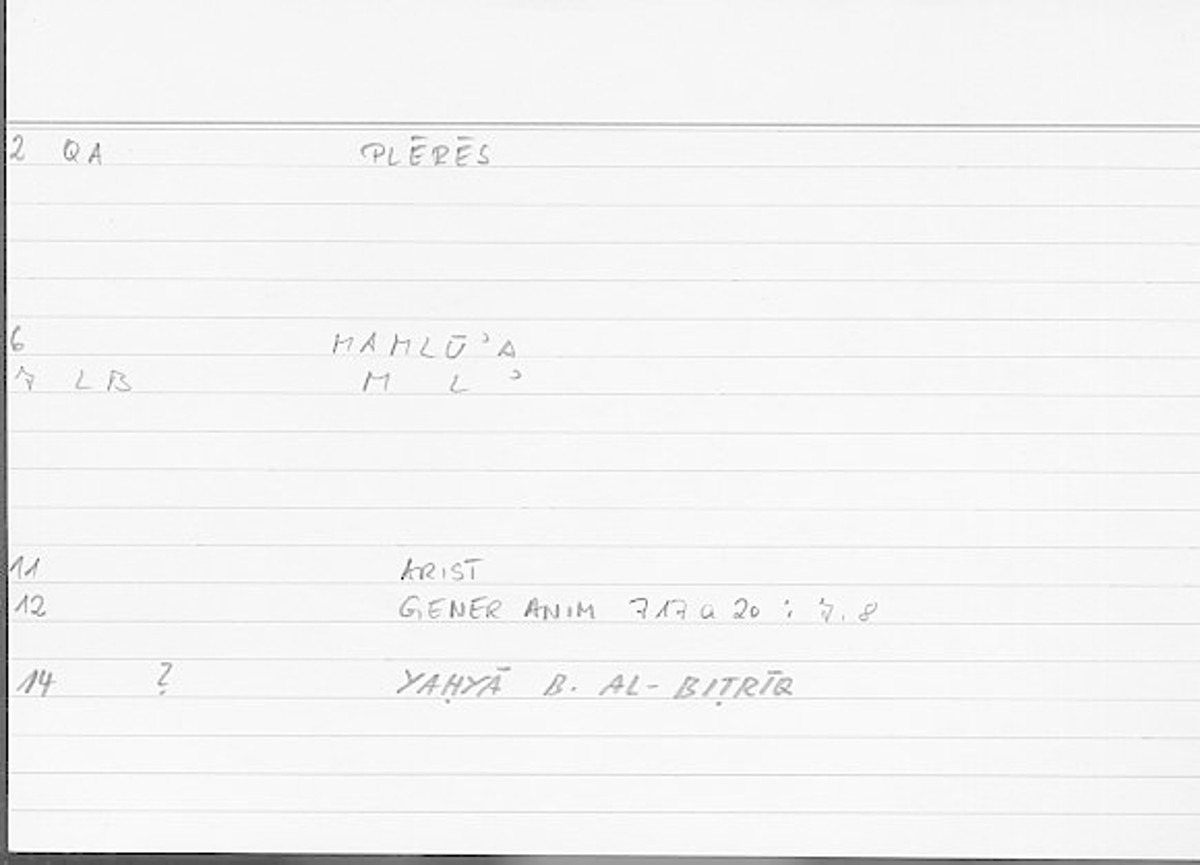 2 QA PLĒRĒS
6 MAMLŪʾA
7 LB M L ʾ
11 ARIST
12 GENER ANIM 717a20 : 7.8
14 ? YAḤYĀ B. AL-BIṬRĪQ